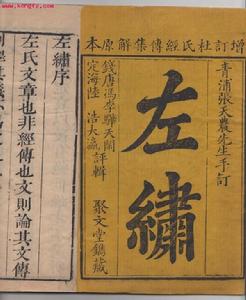 增訂杜氏經傳集解原本
青浦張天農先生手訂
左繡
錢唐馮李驊天閑
定海陸浩大瀛
評輯
聚文堂鐫藏
左繡序
左氏文章也非經傳也文則論其文傳